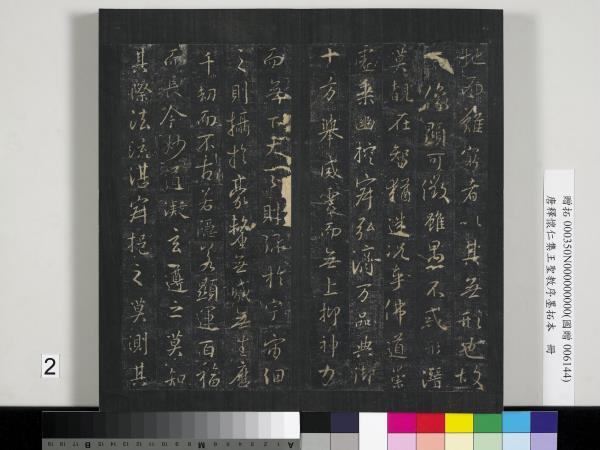 地而難窮者以其無形也故
像顯可徵雖愚不惑形潛
莫覩在智猶迷況乎佛道崇
虛乘幽控寂弘濟万品典御
十方舉威靈而無上抑神力
而無下大之則彌於宇宙細
之則攝於豪釐無滅無生歷
千劫而不古若隱若顯運百福
而長今妙道凝玄遵之莫知
其際法流湛寂挹之莫測其
贈拓 000350N000000000(圖贈 006144)
唐釋懷仁集王聖教序墨拓本 冊
2